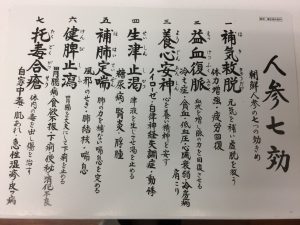 人参七効
朝鮮人参の七つの効きめ
一 補気救脱
元気を補い虚脱を救う
体力増強・疲労回復
二 益血復脈
血を増し脈の力を回復させる
冷え症・貧血・低血圧・心臓衰弱・冷房病
肩こり
三 養心安神
心を養い精神を安す
ノイローゼ・自律神経失調症・動悸
四 生津止渇
津液を生じさせ渇を止める
糖尿病・腎炎
五 補肺定喘
肺の力を補ない喘息を定める
風邪・肺結核・喘息
六 健脾止瀉
胃腸を丈夫にして下痢を止める
胃腸病・食欲不振・下痢・便秘・消化不良
七 托毒合瘡
体内の毒を出し傷を治す
自家中毒・肌あれ・急性湿疹・皮フ病